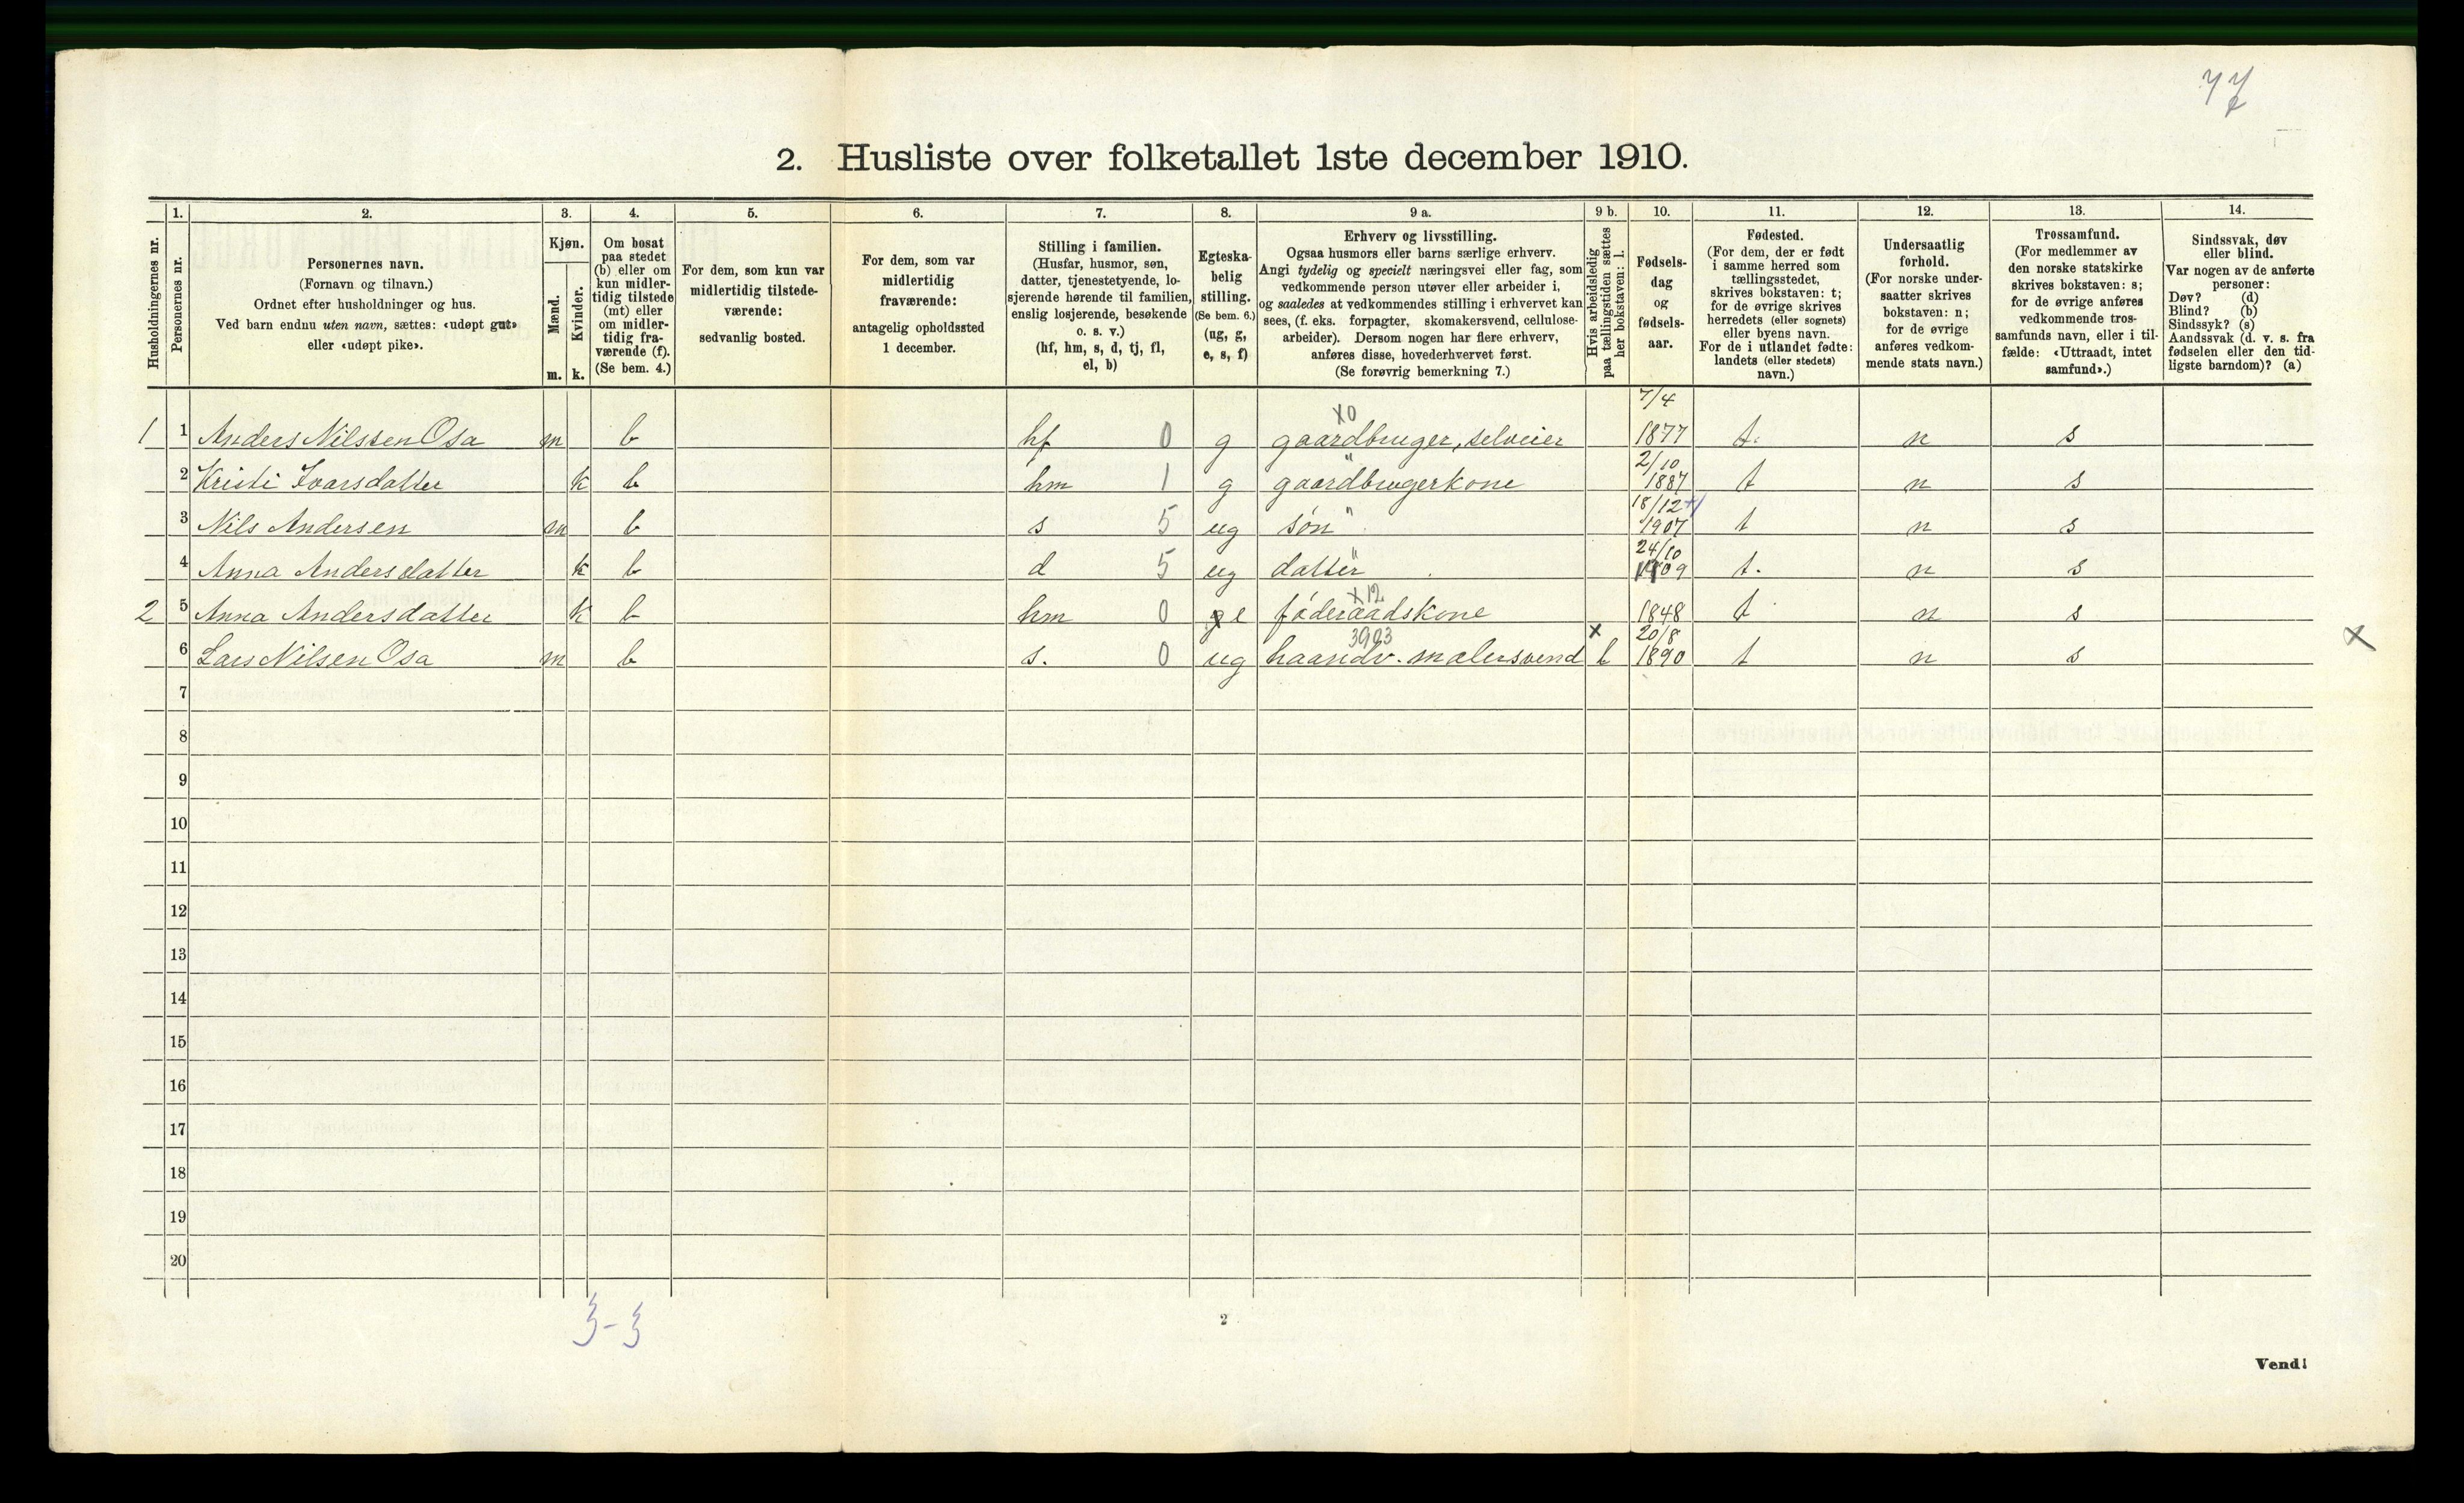 77
2. Husliste over folketallet 1ste december 1910.
Husholdningernes nr.
1.
Personernes nr.
2.
Personernes navn.
(Fornavn og tilnavn.)
Ordnet efter husholdninger og hus.
Ved barn endnu uten navn, sættes: «udøpt gut»
eller «udøpt pike».
3.
Kjøn.
Mænd.
Kvinder.
m. k.
4.
Om bosat
paa stedet
(b) eller om
kun midler-
tidig tilstede
(mt) eller
om midler-
tidig fra-
værende (f).
(Se bem. 4.)
5.
For dem, som kun var
midlertidig tilstede-
værende:
sedvanlig bosted.
6.
For dem, som var
midlertidig
fraværende:
antagelig opholdssted
1 december.
7.
Stilling i familien.
(Husfar, husmor, søn,
datter, tjenestetyende, lo-
sjerende hørende til familien,
enslig losjerende, besøkende
o. s. v.)
(hf, hm, s, d, tj, fl,
el, b)
8.
Egteska-
belig
stilling.
(Se bem. 6.)
(ug, g,
e, s, f)
9 a.
Erhverv og livsstilling.
Ogsaa husmors eller barns særlige erhverv.
Angi tydelig og specielt næringsvei eller fag, som
vedkommende person utøver eller arbeider i,
og saaledes at vedkommendes stilling i erhvervet kan
sees, (f. eks. forpagter, skomakersvend, cellulose-
arbeider). Dersom nogen har flere erhverv,
anføres disse, hovederhvervet først.
(Se forøvrig bemerkning 7.)
9 b.
Hvis arbeidsledig
paa tællingstiden sættes
her bokstaven: l.
10.
Fødsels-
dag
og
fødsels-
aar.
11.
Fødested.
(For dem, der er født
i samme herred som
tællingsstedet,
skrives bokstaven: t;
for de øvrige skrives
herredets (eller sognets)
eller byens navn.
For de i utlandet fødte:
landets (eller stedets)
navn.)
12.
Undersaatlig
forhold.
(For norske under-
saatter skrives
bokstaven: n;
for de øvrige
anføres vedkom-
mende stats navn.)
13.
Trossamfund.
(For medlemmer av
den norske statskirke
skrives bokstaven: s;
for de øvrige anføres
vedkommende tros-
samfunds navn, eller i til-
fælde: «Uttraadt, intet
samfund».)
14.
Sindssvak, døv
eller blind.
Var nogen av de anførte
personer:
Døv? (d)
Blind? (b)
Sindssyk? (s)
Aandssvak (d. v. s. fra
fødselen eller den tid-
ligste barndom)? (a)
7/4
X0
1 1 Anders Nilssen Osa m b hf 0 g gaardbruger, selveier 1877 t. n s
2/10
2 Kristi Ivarsdatter k b hm 1 g gaardbrugerkone 1887 t n s
18/12
3 Nils Andersen m b s 5 ug søn " 1907 t n s
24/10
4 Anna Andersdatter k b d 5 ug datter " 1909 t. n s
X12
2 5 Anna Andersdatter k b hm 0 e føderaadskone 1848 t n s
3903 x 20/8
6 Lars Nilsen Osa m b s. 0 ug haandv. malersvend l 1890 t n s x
7
8
9
10
11
12
13
14
15
16
17
18
19
20
3-3
2
Vend!